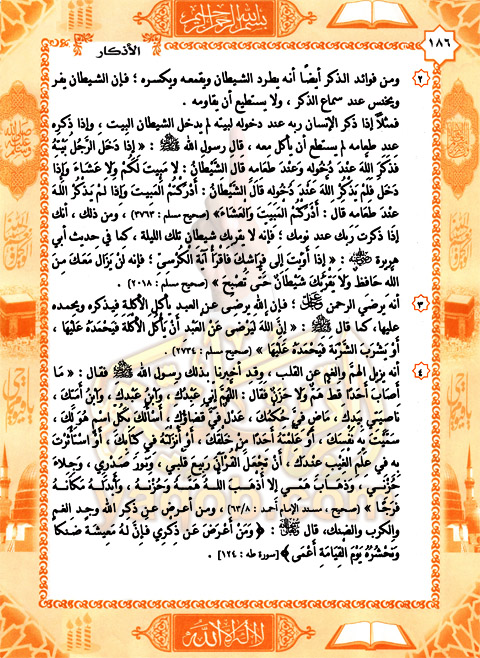 بسم الله الرحمن الرحيم
١٨٦
الأذكار
٢ ومن فوائد الذكر أيضًا أنه يطرد الشيطان ويقمعه ويكسره ؛ فإن الشيطان يفر
ويخنس عند سماع الذكر ، ولا يستطيع أن يقاومه .
فمثلًا إذا ذكر الإنسان ربه عند دخوله لبيته لم يدخل الشيطان البيت ، وإذا ذكره
عند طعامه لم يستطع أن يأكل معه ، قال رسول الله ﷺ : « إِذَا دَخَلَ الرَّجُلُ بَيْتَهُ
فَذَكَرَ اللَّهَ عِنْدَ دُخُولِهِ وَعِنْدَ طَعَامِهِ قَالَ الشَّيْطَانُ : لَا مَبِيتَ لَكُمْ وَلَا عَشَاءَ وَإِذَا
دَخَلَ فَلَمْ يَذْكُرِ اللَّهَ عِنْدَ دُخُولِهِ قَالَ الشَّيْطَانُ : أَدْرَكْتُمُ الْمَبِيتَ وَإِذَا لَمْ يَذْكُرِ اللَّهَ
عِنْدَ طَعَامِهِ قَالَ : أَدْرَكْتُمُ الْمَبِيتَ وَالْعَشَاءَ» (صحيح مسلم : ٣٧٦٣) ، ومن ذلك ، أنك
إذا ذكرت ربك عند نومك ؛ فإنه لا يقربك شيطان تلك الليلة ، كما في حديث أبي
هريرة : « إِذَا أَوَيْتَ إِلَى فِرَاشِكَ فَاقْرَأْ آيَةَ الْكُرْسِيِّ ؛ فَإِنَّهُ لَنْ يَزَالَ مَعَكَ مِنَ
اللهِ حَافِظٌ وَلَا يَقْرَبُكَ شَيْطَانٌ حَتَّى تُصْبِحَ » (صحيح مسلم : ٢٠١٨) .
٣ أنه يرضي الرحمن ؛ فإن الله يرضى عن العبد يأكل الأكلة فيذكره ويحمده
عليها، كما قال ﷺ : « إِنَّ اللهَ لَيَرْضَى عَنِ الْعَبْدِ أَنْ يَأْكُلَ الْأَكْلَةَ فَيَحْمَدَهُ عَلَيْهَا ،
أَوْ يَشْرَبَ الشَّرْبَةَ فَيَحْمَدَهُ عَلَيْهَا » (صحيح مسلم : ٢٧٣٤) .
٤ أنه يزيل الهمَّ والغم عن القلب ، وقد أخبرنا بذلك رسول الله ﷺ فقال : « مَا
أَصَابَ أَحَدًا قَطُّ هَمٌّ وَلَا حَزَنٌ فَقَالَ : اللَّهُمَّ إِنِّي عَبْدُكَ ، وَابْنُ عَبْدِكَ ، وَابْنُ أَمَتِكَ ،
نَاصِيَتِي بِيَدِكَ، مَاضٍ فِيَّ حُكْمُكَ، عَدْلٌ فِيَّ قَضَاؤُكَ، أَسْأَلُكَ بِكُلِّ اسْمٍ هُوَ لَكَ ،
سَمَّيْتَ بِهِ نَفْسَكَ ، أَوْ عَلَّمْتَهُ أَحَدًا مِنْ خَلْقِكَ ، أَوْ أَنْزَلْتَهُ فِي كِتَابِكَ ، أَوْ اسْتَأْثَرْتَ
بِهِ فِي عِلْمِ الْغَيْبِ عِنْدَكَ ، أَنْ تَجْعَلَ الْقُرْآنَ رَبِيعَ قَلْبِي ، وَنُورَ صَدْرِي ، وَجِلَاءَ
حُزْنِي ، وَذَهَابَ هَمِّي إِلَّا أَذْهَبَ اللهُ هَمَّهُ وَحُزْنَهُ ، وَأَبْدَلَهُ مَكَانَهُ
فَرَجًا » (صحيح ، مسند الإمام أحمد : ٦٣/٨) ، ومن أعرض عن ذكر الله وجد الغم
والكرب والضنك، قال : ﴿وَمَنْ أَعْرَضَ عَن ذِكْرِي فَإِنَّ لَهُ مَعِيشَةً ضَنكًا
وَنَحْشُرُهُ يَوْمَ الْقِيَامَةِ أَعْمَى﴾ [سورة طه : ١٢٤] .
لا إله إلا الله